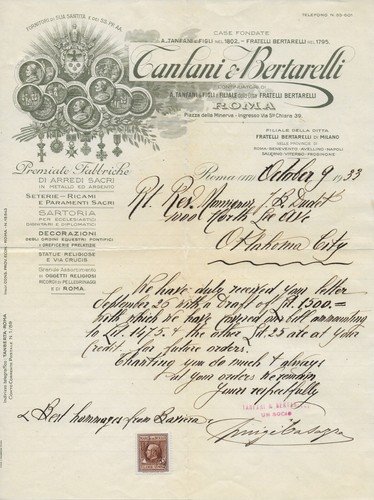 TELEFONO N. 53-601
FORNITORI DI SUA SANTITÀ E DEI SS. PP. AA.
CASE FONDATE
A. TANFANI E FIGLI nel 1802. - FRATELLI BERTARELLI nel 1795.
Tanfani & Bertarelli
CONTINUATORI DI
A. TANFANI & FIGLI e FILIALE della Ditta FRATELLI BERTARELLI
ROMA
Piazza della Minerva - Ingresso Via Sta Chiara 39.
FILIALE DELLA DITTA
FRATELLI BERTARELLI DI MILANO
NELLE PROVINCIE DI
ROMA-BENEVENTO-AVELLINO-NAPOLI
SALERNO-VITERBO-FROSINONE
Premiate Fabbriche
DI ARREDI SACRI
IN METALLO ED ARGENTO
SETERIE - RICAMI
E PARAMENTI SACRI
SARTORIA
PER ECCLESIASTICI
DIGNITARI E DIPLOMATICI
DECORAZIONI
DEGLI ORDINI EQUESTRI PONTIFICI
E OREFICERIE PRELATIZIE
STATUE RELIGIOSE
E VIA CRUCIS
Grande Assortimento
DI OGGETTI RELIGIOSI
RICORDI di PELLEGRINAGGI
E DI ROMA.
Indirizzo telegrafico: TANBERTA-ROMA
Roma October 9 1933
Rt. Rev. Monsignor
1900 North Lee Ave
Oklahoma City
We have duly received your letter
September 25 with a Draft of Lit. 1500.=
with which we have covered our bill amounting
to Lit. 1475. & the other Lit. 25 are at your
Credit for future orders.
Thanking you so much & always
at your orders we remain
Yours respectfully
& Best hommages from
TANFANI & BERTARELLI
UN SOCIO